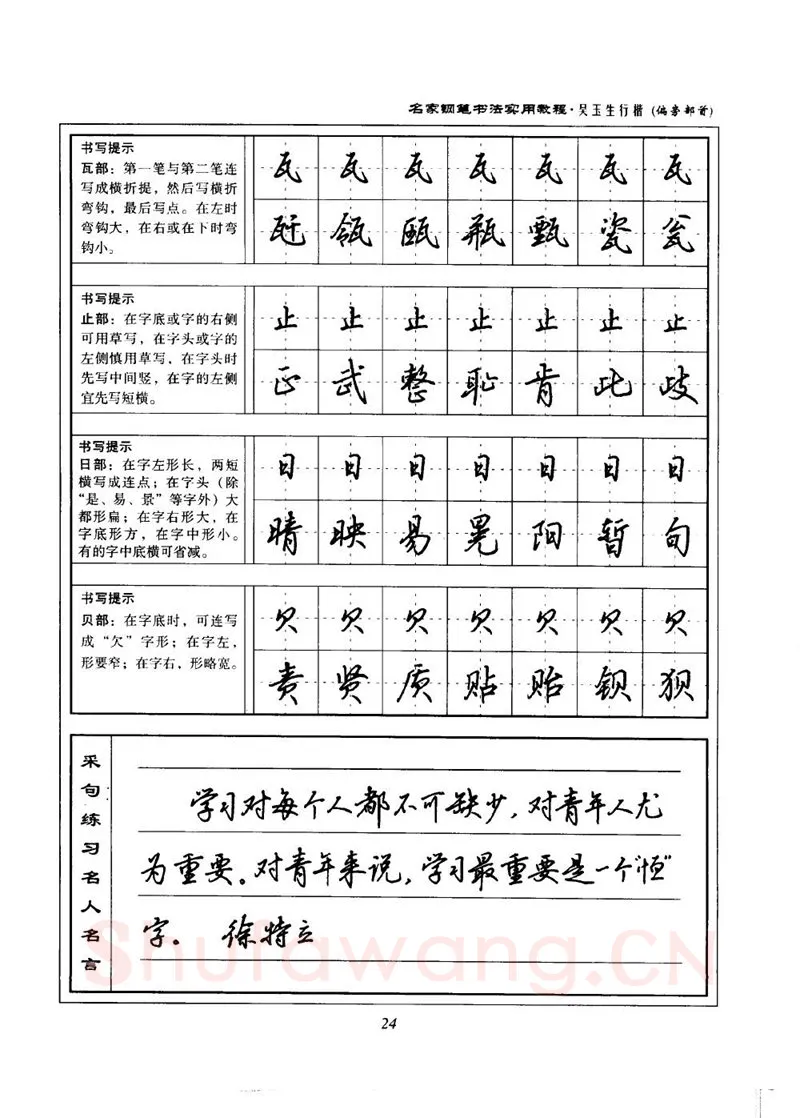 名家钢笔书法实用教程·吴玉生行楷（偏旁部首）
书写提示
瓦部：第一笔与第二笔连
写成横折提，然后写横折
弯钩，最后写点。在左时
弯钩大，在右或在下时弯
钩小。
瓦 瓦 瓦 瓦 瓦 瓦 瓦
瓩 瓴 瓯 瓶 甄 瓷 瓮
书写提示
止部：在字底或字的右侧
可用草写，在字头或字的
左侧慎用草写，在字头时
先写中间竖，在字的左侧
宜先写短横。
止 止 止 止 止 止 止
正 武 整 耻 肯 此 歧
书写提示
日部：在字左形长，两短
横写成连点；在字头（除
“是、易、景”等字外）大
都形扁；在字右形大，在
字底形方，在字中形小。
有的字中底横可省减。
日 日 日 日 日 日 日
晴 映 易 晃 阳 暂 旬
书写提示
贝部：在字底时，可连写
成“欠”字形；在字左，
形要窄；在字右，形略宽。
贝 贝 贝 贝 贝 贝 贝
责 贤 质 贴 贻 钡 狈
采句练习名人名言
学习对每个人都不可缺少，对青年人尤
为重要。对青年来说，学习最重要是一个“恒”
字。 徐特立
Shufawang.CN
24